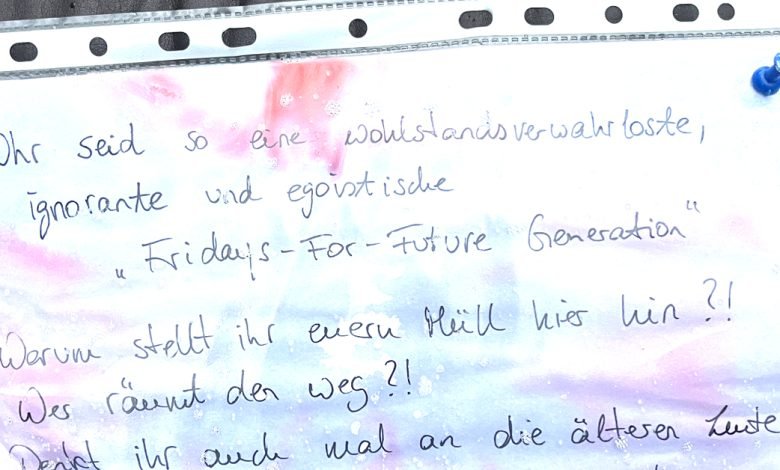 Ihr seid so eine wohlstandsverwahrloste,
ignorante und egoistische
„Fridays-For-Future Generation“
Warum stellt ihr euern Müll hier hin?!
Wer räumt den weg?!
Denkt ihr auch mal an die älteren Leute